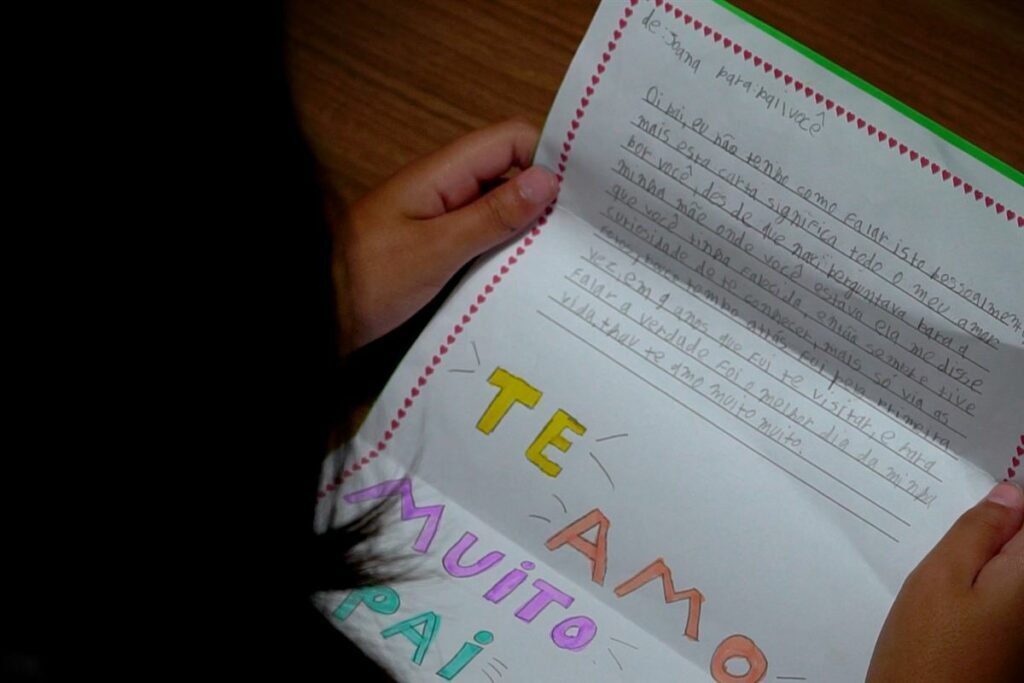 de: Joana para: pai\você
Oi pai, eu não tenho como falar isto pessoalment
mais esta carta significa todo o meu amor
por você, des de que naci perguntava para a
minha mãe onde você estava ela me disse
que você tinha falecido, então sempre tive
curiosidade de te conhecer, mais só via as
fotos, pouco tempo atrás fui pela primeira
vez, em 9 anos que fui te visitar, e para
falar a verdade foi o melhor dia da minha
vida, te amo muito muito.
TE
AMO
MUITO
PAi